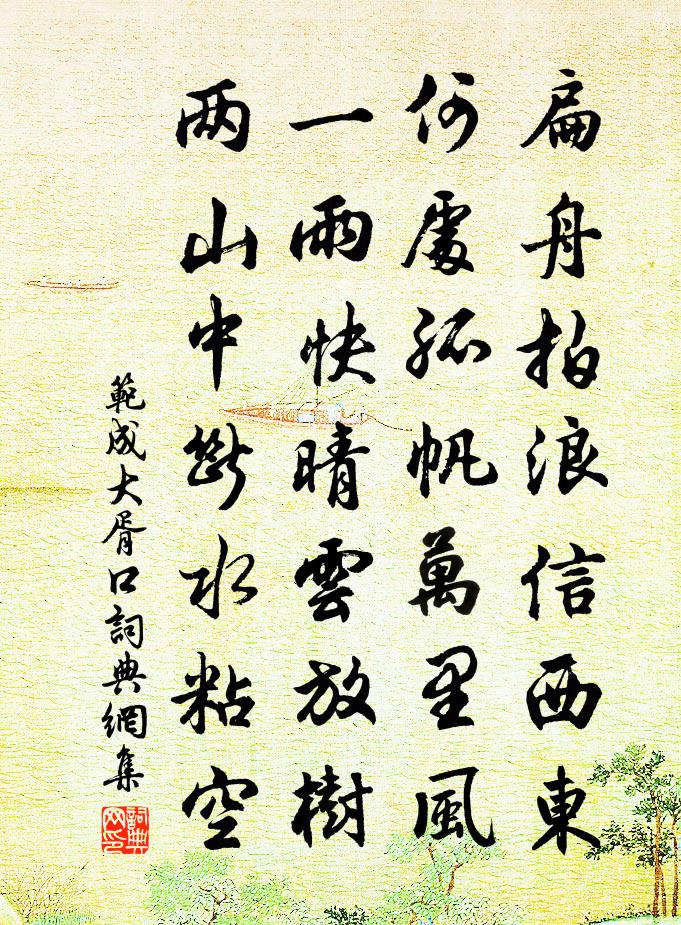 扁舟拍浪信西東
何處孤帆萬里風
一雨快晴雲放樹
两山中斷水粘空
範成大胥口詞典網集
詞典
网印